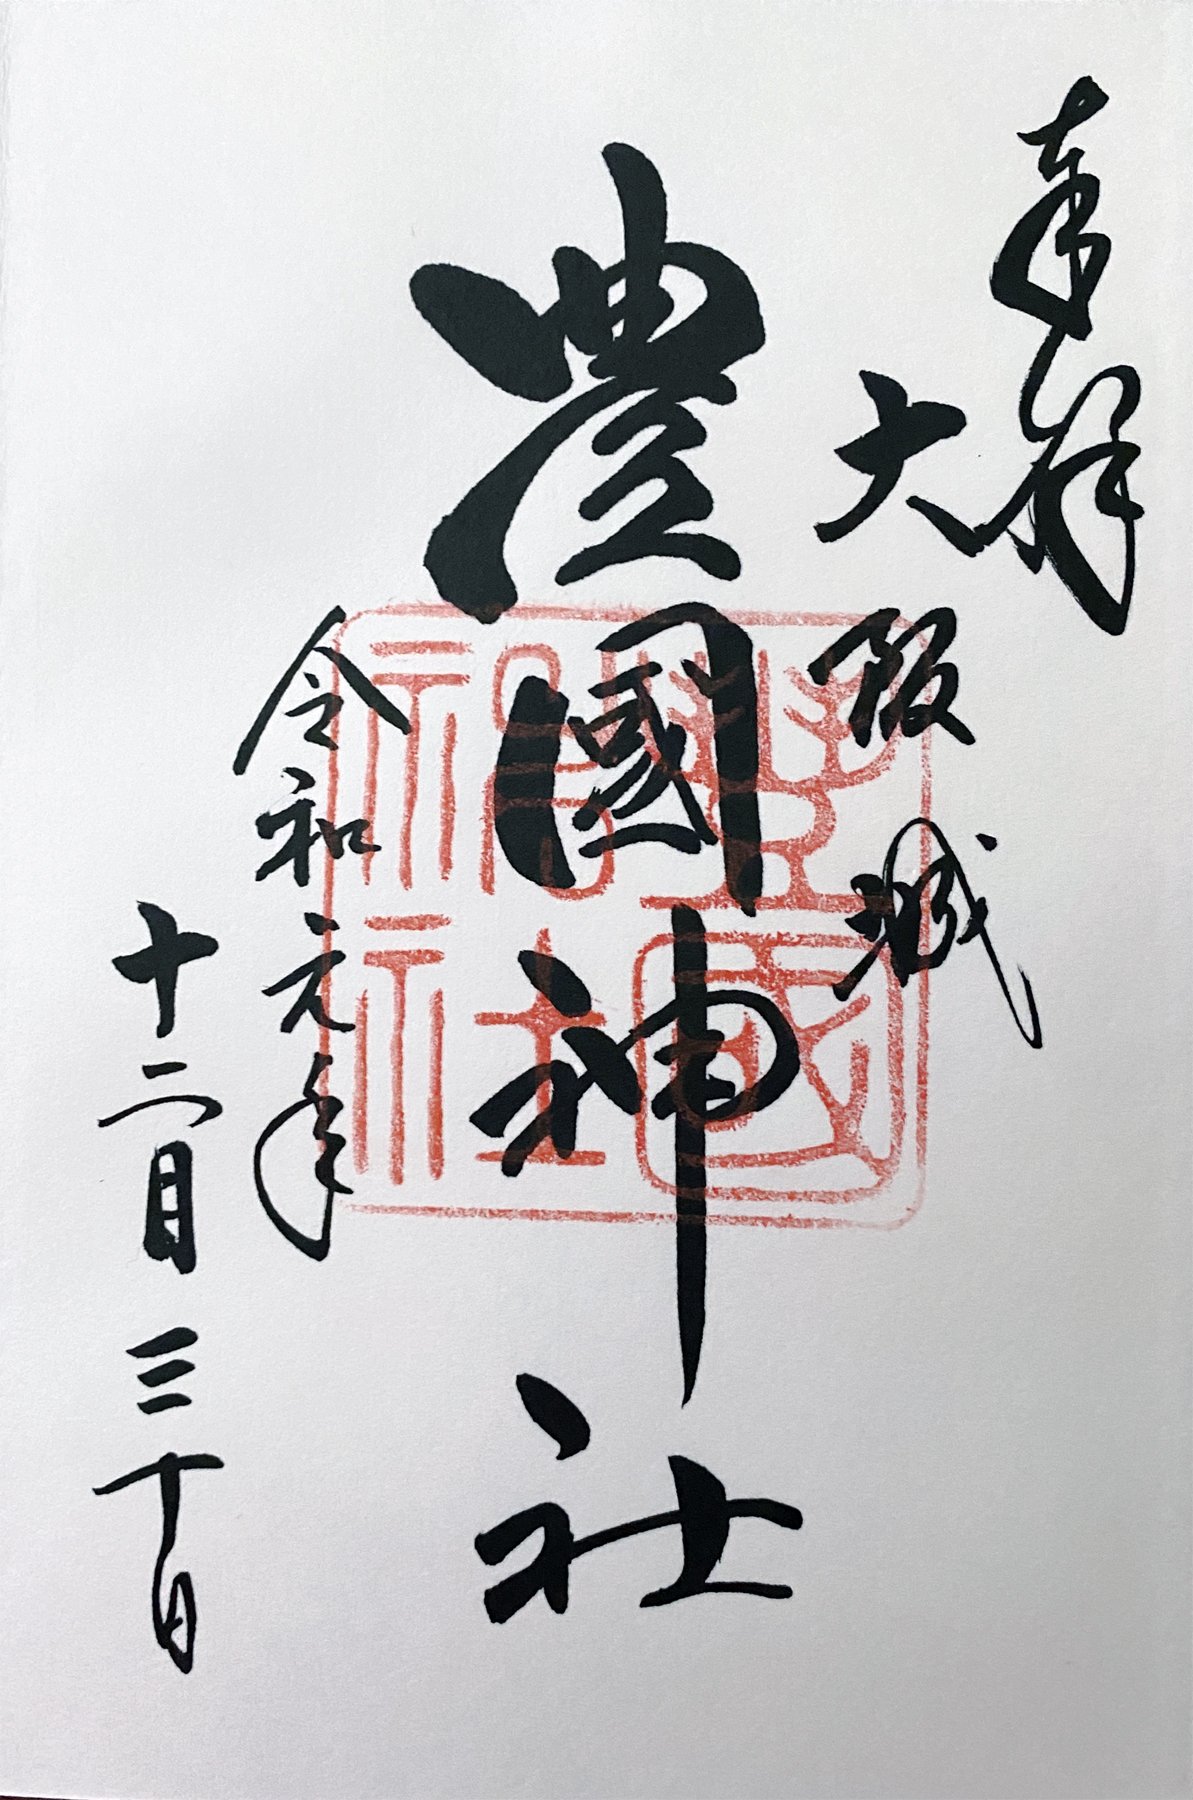 奉拝
大阪城
豊國神社
令和元年
十二月三十日
豊國神社